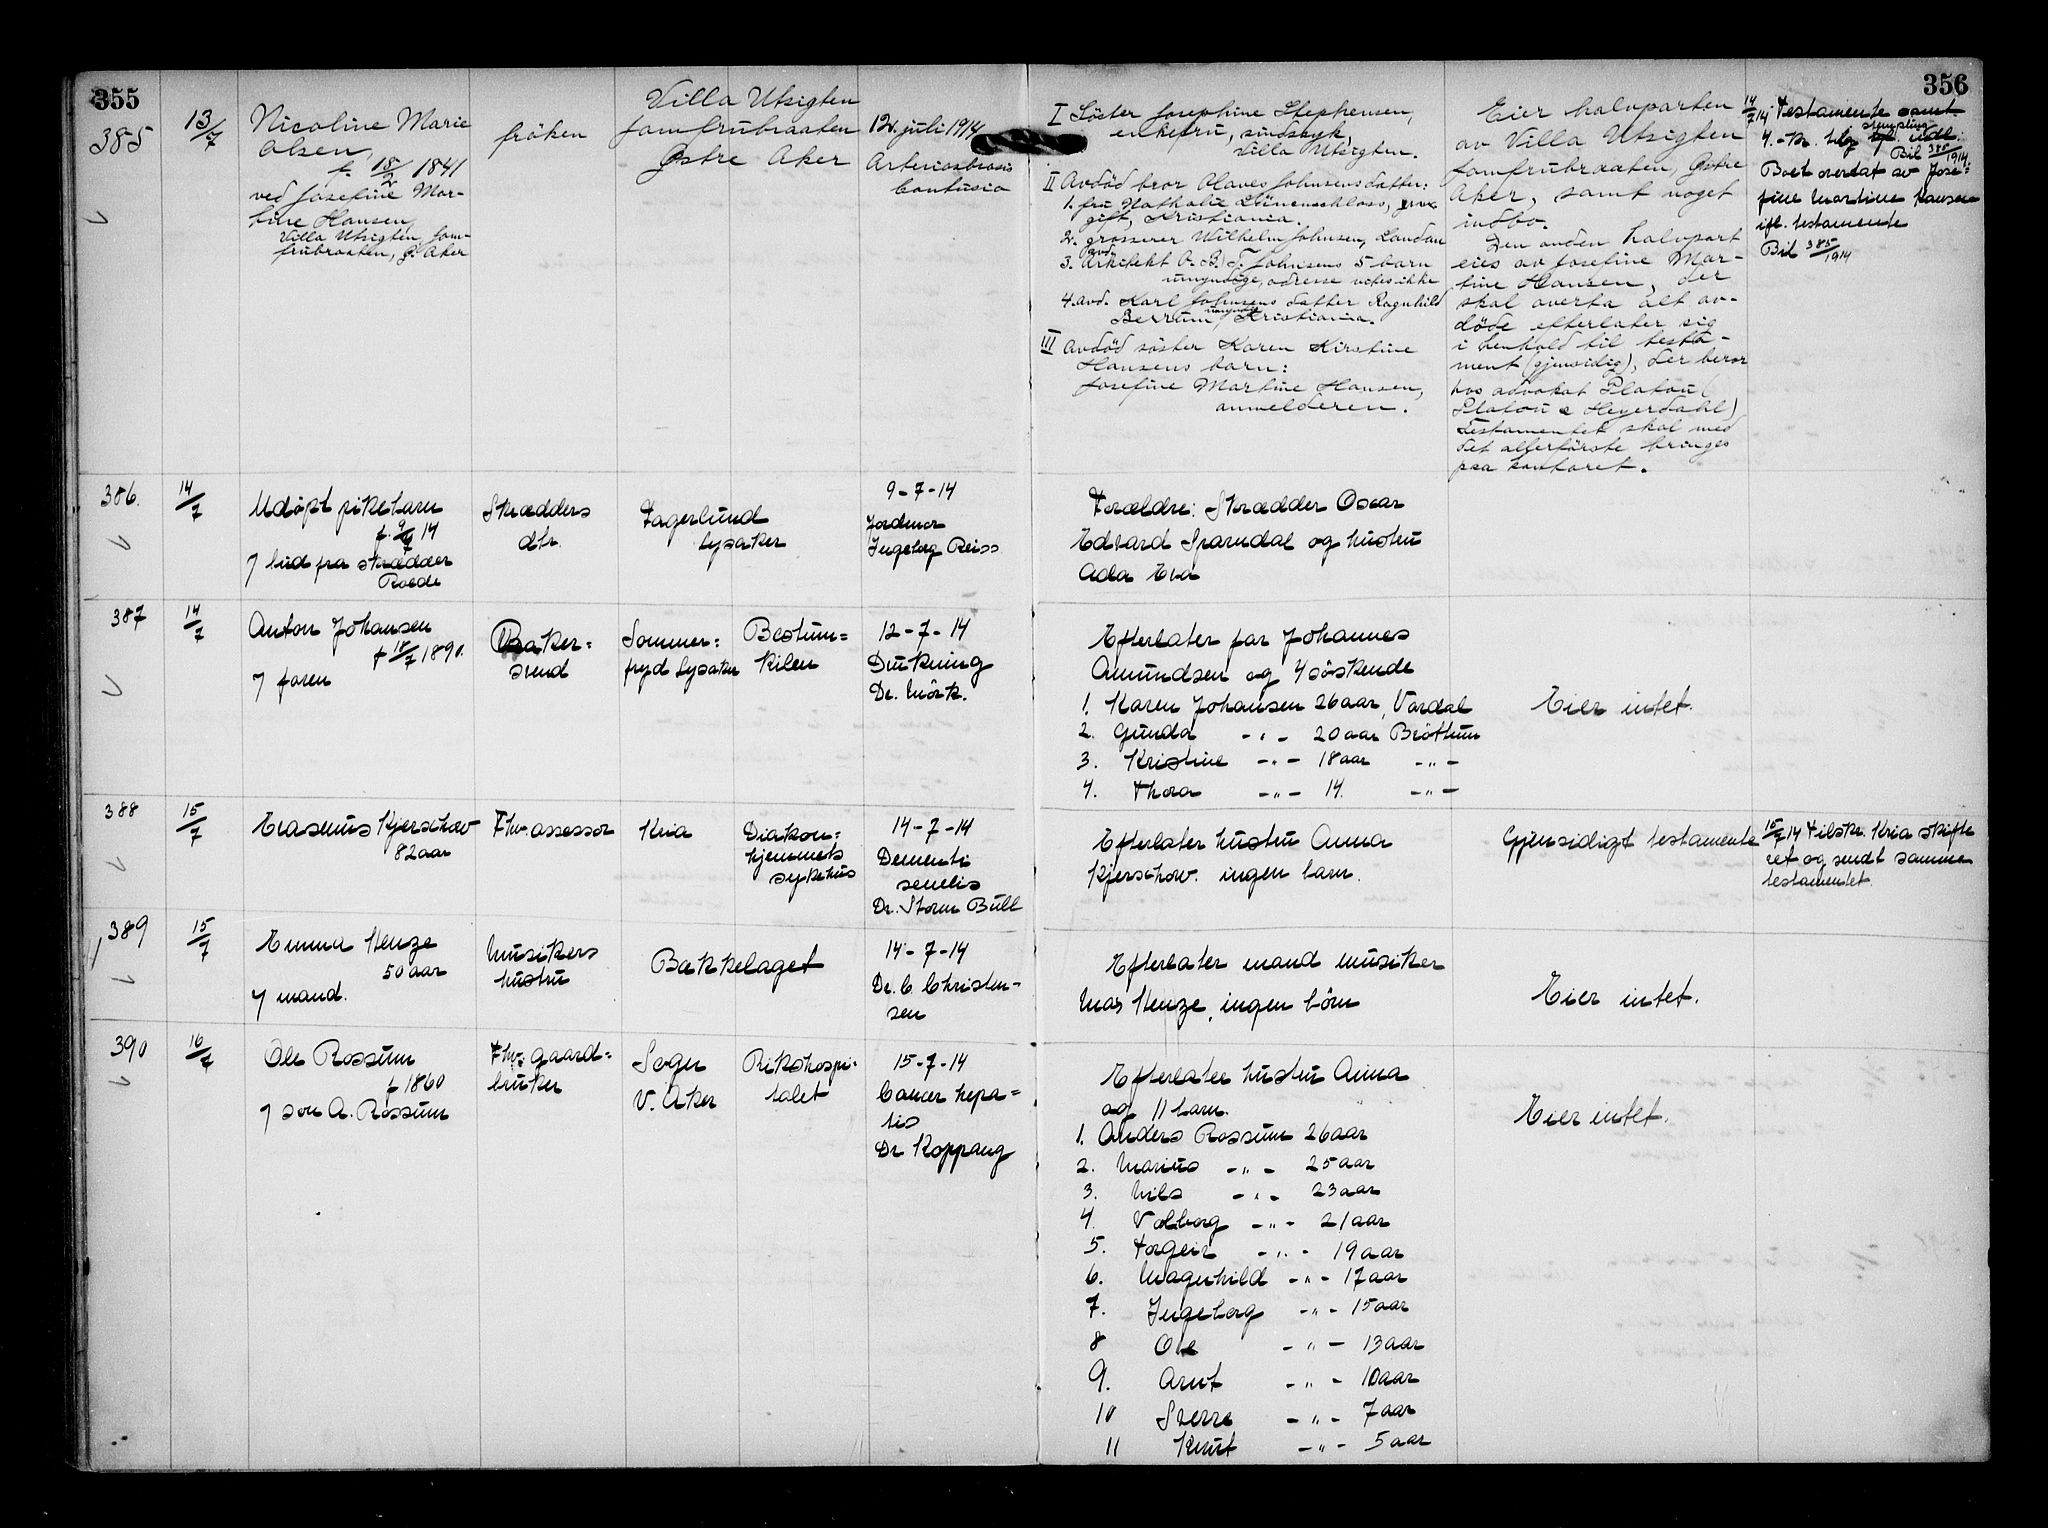 355
356
385
13/7
Nicoline Marie
Olsen,
f. 18/2 1841
ved Josefine Mar-
tine Hansen,
Villa Utsigten, Jom-
frubraaten, Ø. Aker
fröken
Villa Utsigten
Jomfrubraaten
Østre Aker
12. juli 1914
Contusio
I Söster Josephine Stephensen,
enkefru, sindssyk,
Villa Utsigten.
II Avdöd bror Olaves Johnsens datter:
1. fru Nathalie
gift, Kristiania.
2. grosserer Wilhelm Johnsen, London
3. avd. Arkitekt O. B. T. Johnsens 5 barn
umyndige, adresse vites ikke
4. avd. Karl Johnsens datter Ragnhild
Berrum, umyndig Kristiania.
III Avdöd söster Karen Kirstine
Hansens barn:
Josefine Martine Hansen,
anmelderen.
Eier halvparten
av Villa Utsigten
Jomfrubraaten, Østre
Aker, samt noget
indbo.
Den anden halvpart
eies av Josefine Mar-
tine Hansen, der
skal overta alt av-
döde efterlater sig
i henhold til testa-
ment (gjensidig), der beror
hos advokat Platou (
Platou & Heyerdahl)
Testamentet skal med
det allerförste bringes
paa kontoret.
14/7 14 Testamente samt
Bil 385/1914.
Boet overdat av Jose-
fine Martine Hansen
ifl. testamente
Bil 385/1914
386.
14/7
Udøpt pikebarn
f. 9/7 14
7 bud fra skrædder
Roede
Skrædders
dtr.
Fagerlund
Lysaker
9-7-14
Jordmor
Ingeborg Reiss
Forældre: Skrædder Oscar
Edvard Sparndal og hustru
Ada Eva
387
14/7
Anton Johansen
f 18/7 1890.
7 faren
Baker=
svend
Sommer=
fryd Lysaker
Bestum=
kilen
12-7-14
Drukning
Dr. Mörk.
Efterlater far Johannes
Amundsen og 4 söskende
1. Karen Johansen 26 aar, Vardal
2. Gunda -"- 20 aar Bröttum
3. Kristine -"- 18 aar -"-
4. Thora -"- 14. -"-
Eier intet.
388
15/7
Erasmus Kjerschow
82 aar
Fhv. assessor
Kria
Diakon=
hjemmets
sykehus
14-7-14
Dementi
senelis
Dr. Storm Bull
Efterlater hustru Anna
Kjerschow. ingen barn.
Gjensidigt testamente
15/7 14 Tilskr. Kria skifte
ret og sendt samme
testamentet.
389
15/7
Emma Henze
50 aar
7 mand.
Musikers
hustru
Bækkelaget
14-7-14
Dr. C. Christen-
sen
Efterlater mand musiker
Max Henze, ingen börn
Eier intet.
390
16/7
Ole Rossum
f 1860
7 son A. Rossum
Fhv. gaard=
bruker
Sogn
V. Aker
Rikshospi=
talet
15-7-14
Cancer hepa=
tis
Dr Koppang
Efterlater hustru Anna
og 11 barn.
1. Anders Rossum 26 aar
2. Marius -"- 25 aar
3. Nils -"- 23 aar
4. Valborg -"- 21 aar
5. Torgeir -"- 19 aar
6. Magnhild -"- 17 aar
7. Ingeborg -"- 15 aar
8 Ole -"- 13 aar
9. Arnt -"- 10 aar
10 Sverre -"- 7 aar
11 Knut -"- 5 aar
Eier intet.